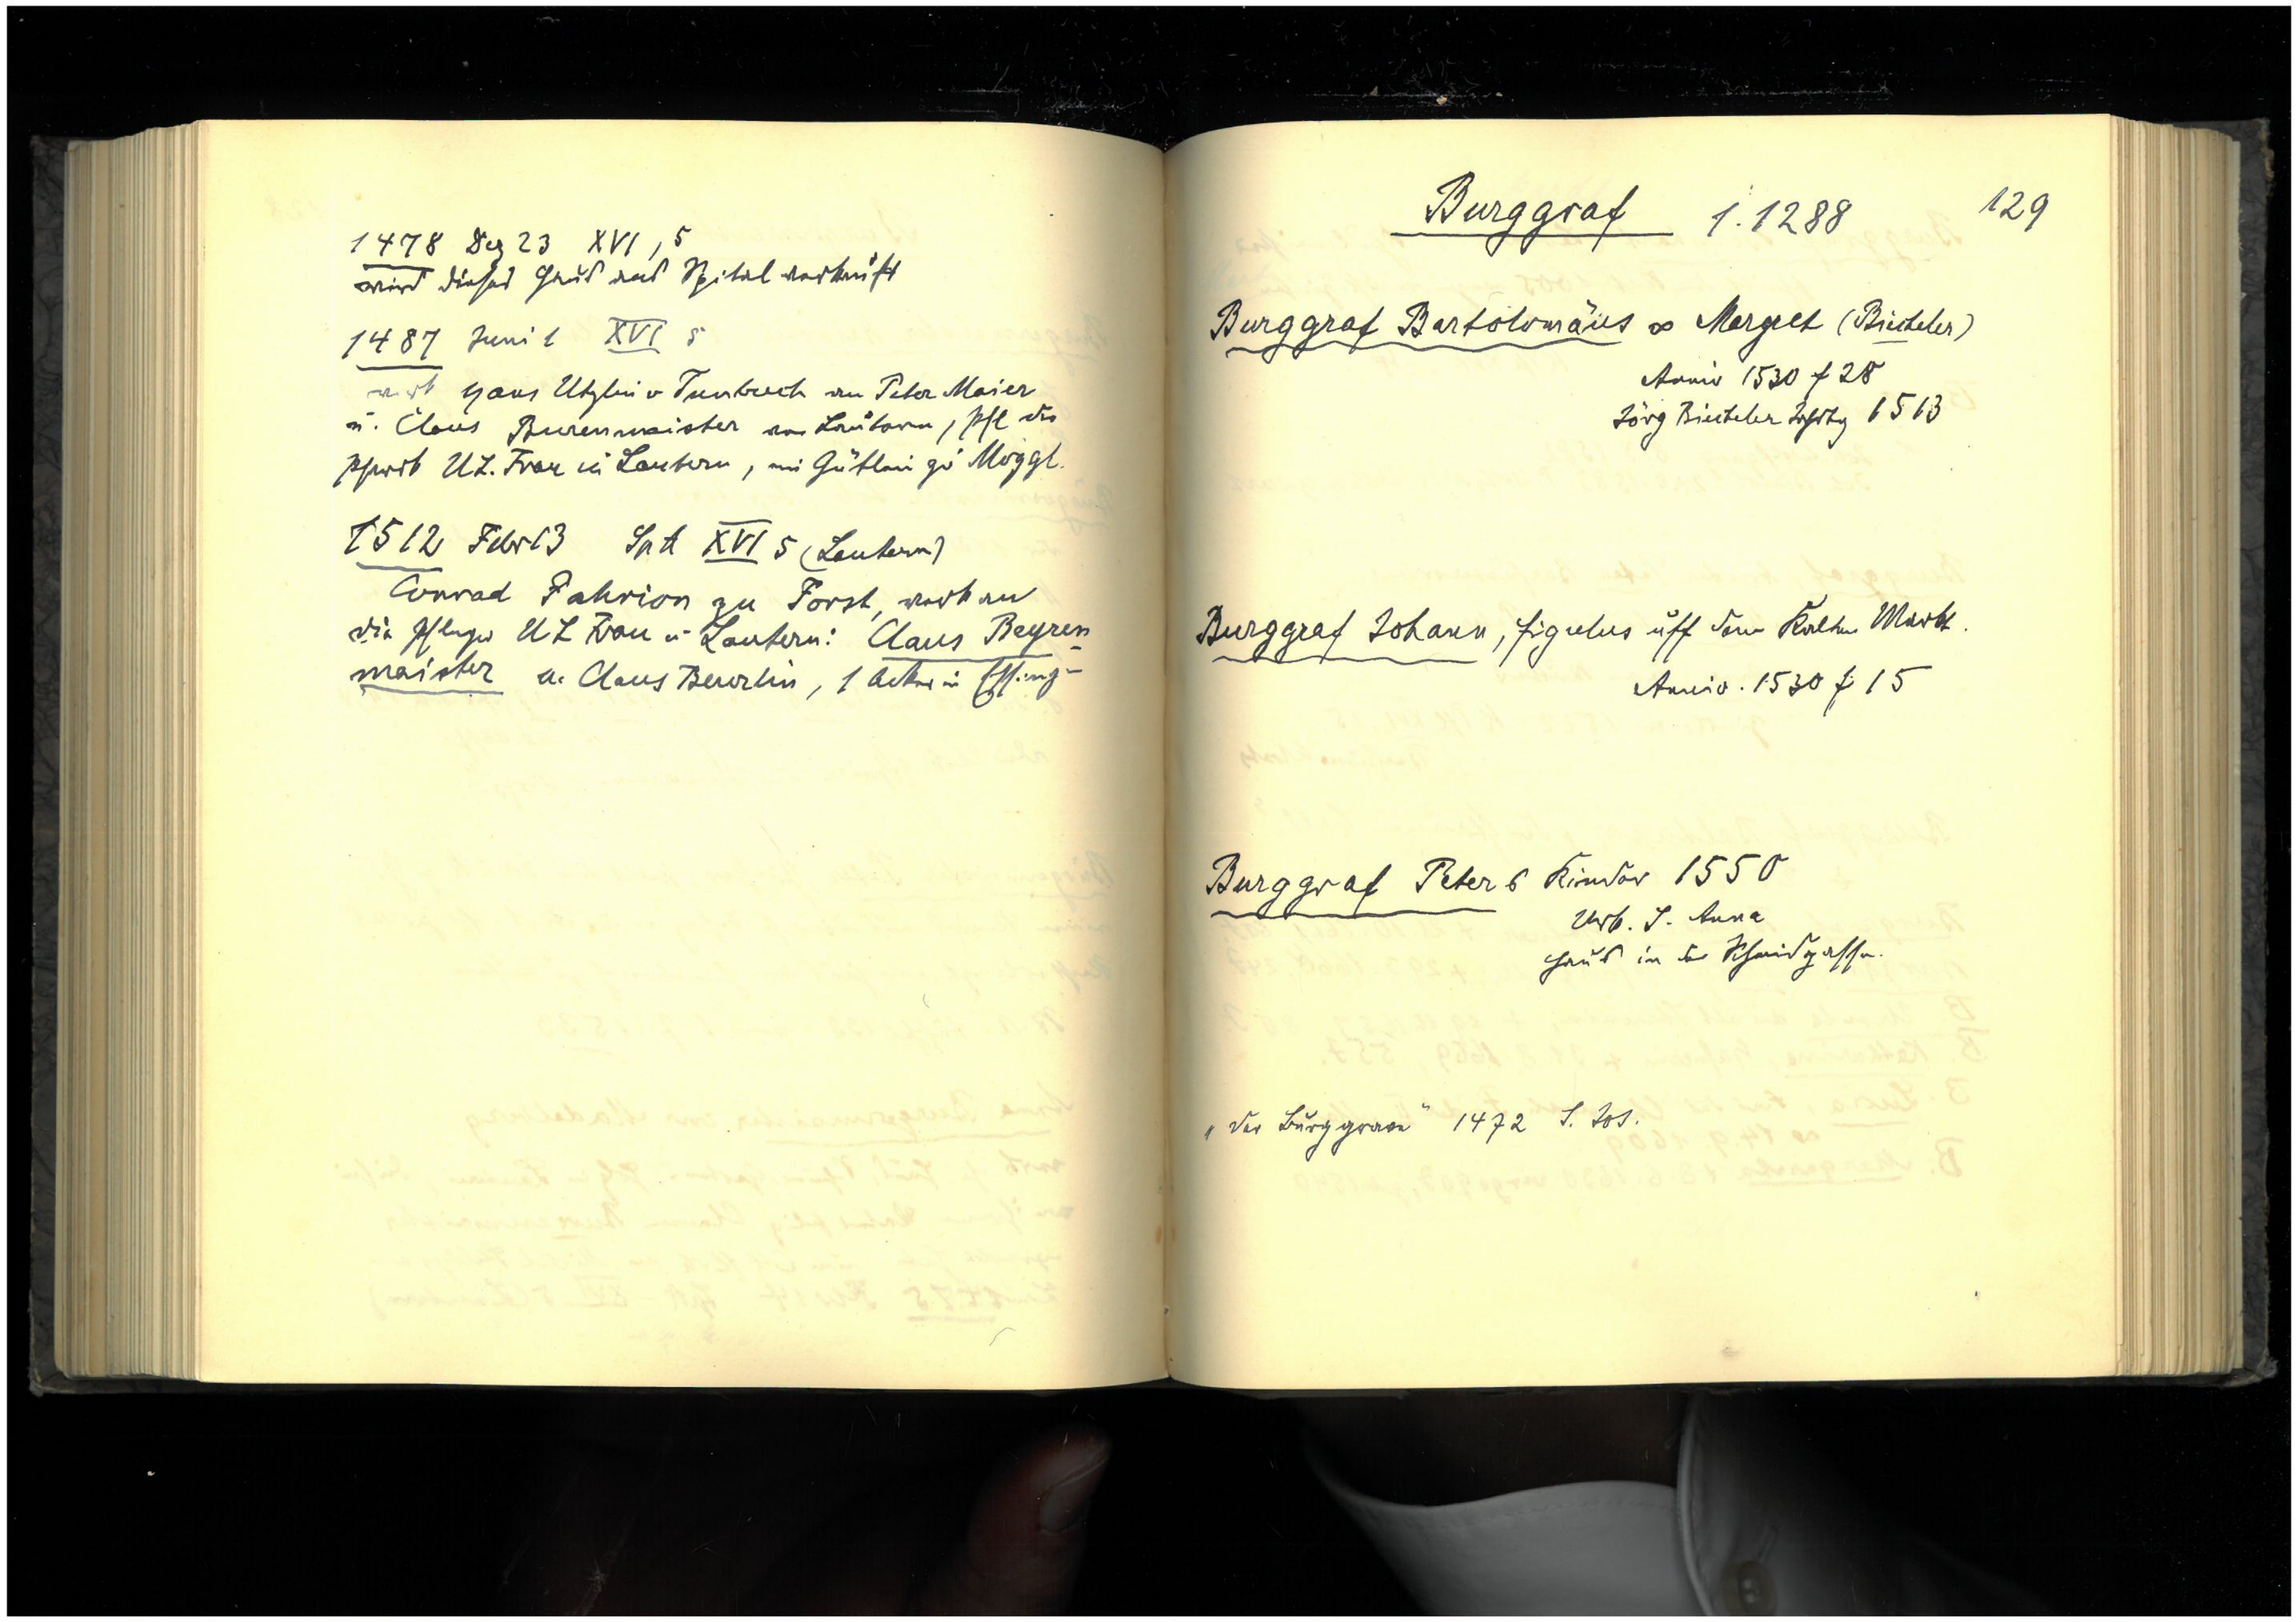 1478 Dez 23 XVI, 5
wird dieses Haus ans Spital verkauft
1487 Juni 1 XVI 5
verk Hans Utzlin v Tunbuch an Peter Maier
u. Claus Burenmaister von Lautern, Pfl der
Pfarrk U.L. Frau in Lautern, ein Gütlein zu Möggl.
1512 Febr 13 SpA XVI 5 (Lautern)
Conrad Fahrion zu Forst, verk an
die Pfleger U L Frau in Lautern: Claus Beyren
maister u. Claus Beurlin, 1 Acker in Essing-
Burggraf 1.1288 129
Burggraf Bartolomäus ∞ Margret (Bieteler)
Anniv 1530 f 28
Jörg Bieteler 1513
Burggraf Johann, figulus uff dem Kalten Markt.
Anniv. 1530 f 15
Burggraf Peters Kinder 1550
Urb. S. Anna
Haus in der Schmidgasse.
„der Burggrave" 1472 S. Jos.